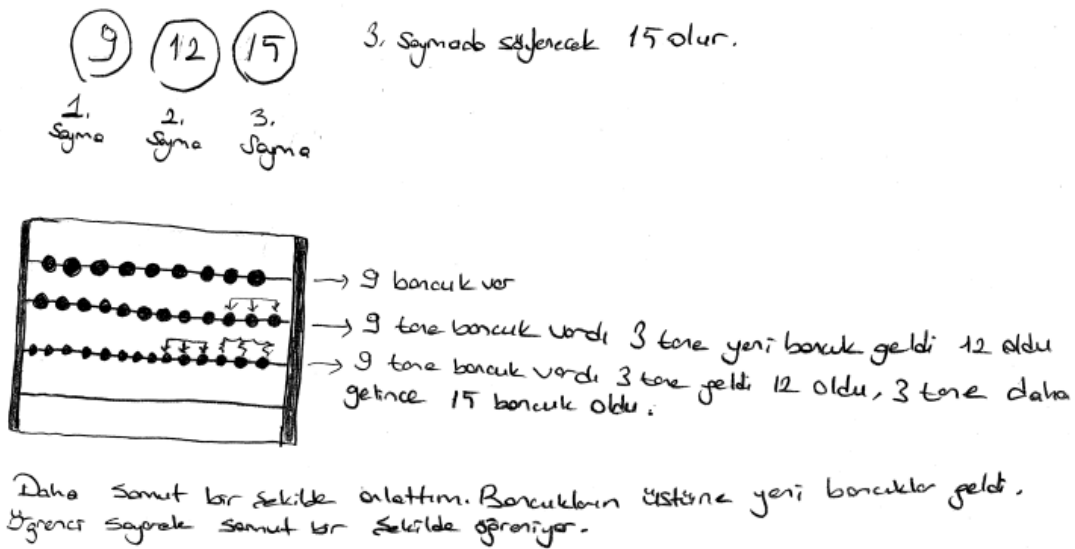 9 12 15 3. Saymada söylenecek 15 olur.
1. Sayma 2. Sayma 3. Sayma
→ 9 boncuk var
→ 9 tane boncuk vardı 3 tane yeni boncuk geldi 12 oldu
→ 9 tane boncuk vardı 3 tane geldi 12 oldu, 3 tane daha
gelince 15 boncuk oldu.
Daha somut bir şekilde anlattım. Boncukların üstüne yeni boncuklar geldi.
Öğrenci sayarak somut bir şekilde öğreniyor.